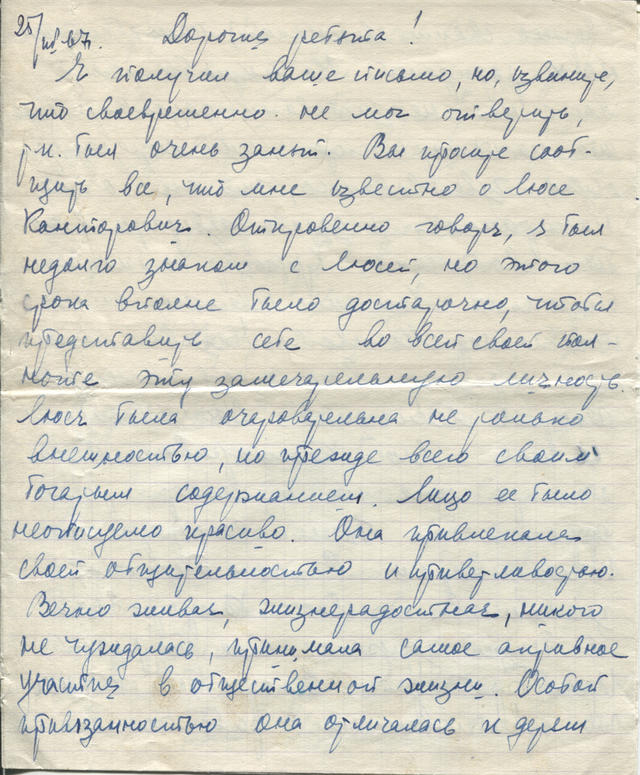 25/VI 67. Дорогие ребята!
Я получил ваше письмо, но, извините,
что своевременно не мог ответить,
т.к. был очень занят. Вы просите сооб-
щить все, что мне известно о Люсе
Канторович. Откровенно говоря, я был
недолго знаком с Люсей, но этого
срока вполне было достаточно, чтобы
представить себе во всей своей пол-
ноте эту замечательную личность.
Люся была очаровательна не только
внешностью, но прежде всего своим
богатым содержанием. Лицо ее было
неописуемо красиво. Она привлекала
своей общительностью и приветливостью.
Вечно живая, жизнерадостная, никого
не чуждалась, принимала самое активное
участие в общественной жизни. Особой
привязанностью она отличалась к детям